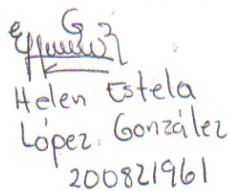 Helen Estela
López González
200821961